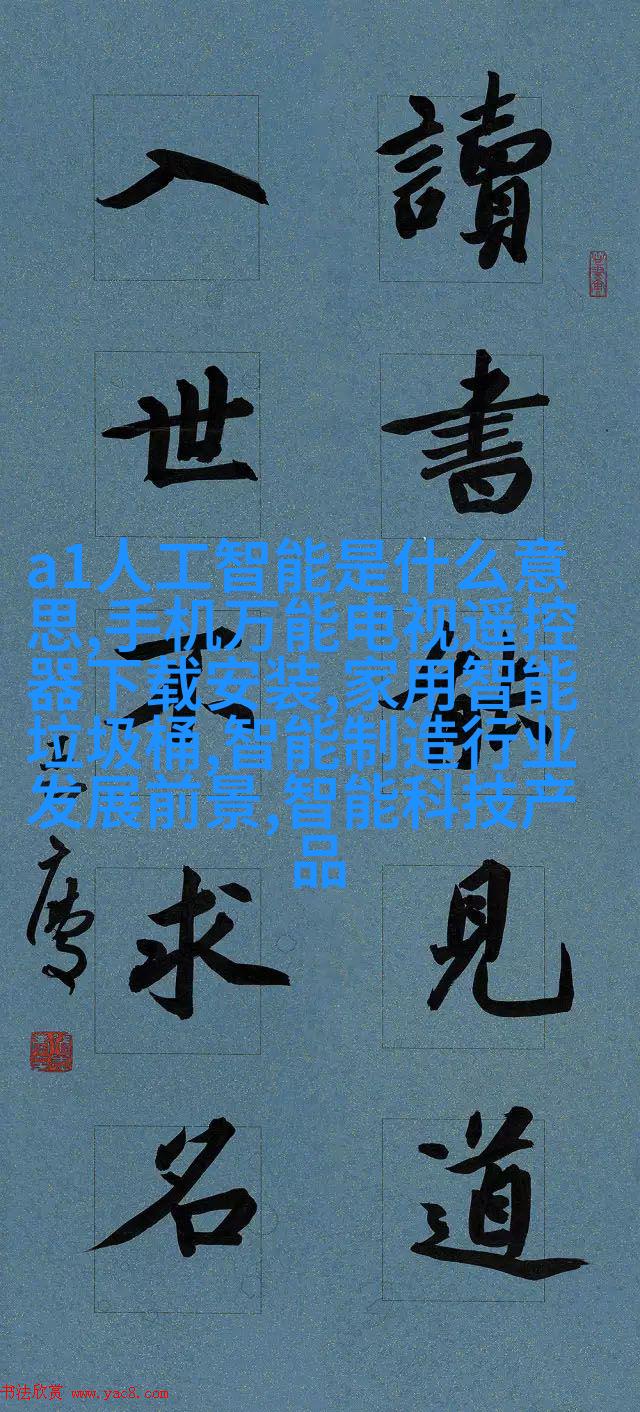 讀書見道
入世不求名
a1人工智能是什么意
思,手机万能电视遥控
器下载安装,家用智能
垃圾桶,智能制造行业
发展前景,智能科技产
品
书法欣赏 www.yac8.com